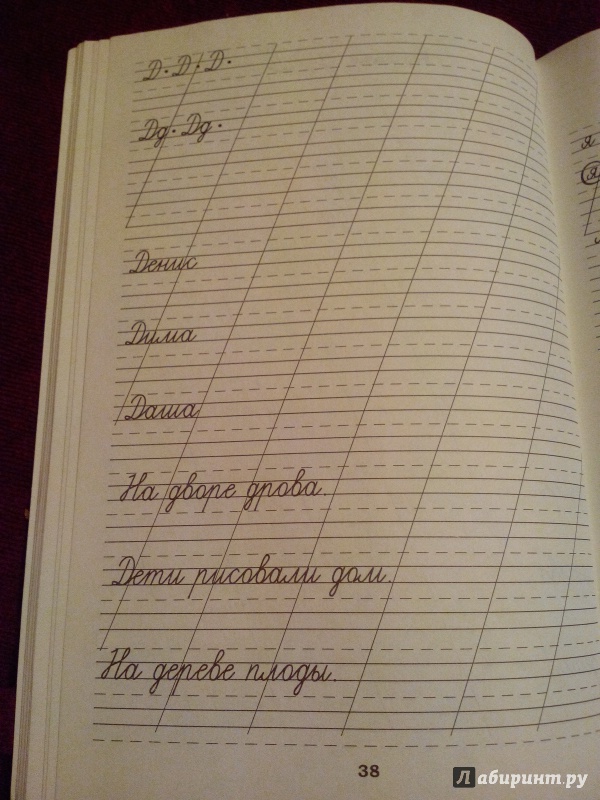 Д. Д. Д.
Дд. Дд.
Денис
Дима
Даша
На дворе дрова.
Дети рисовали дом.
На дереве плоды.
38
я
я
Лабиринт.ру